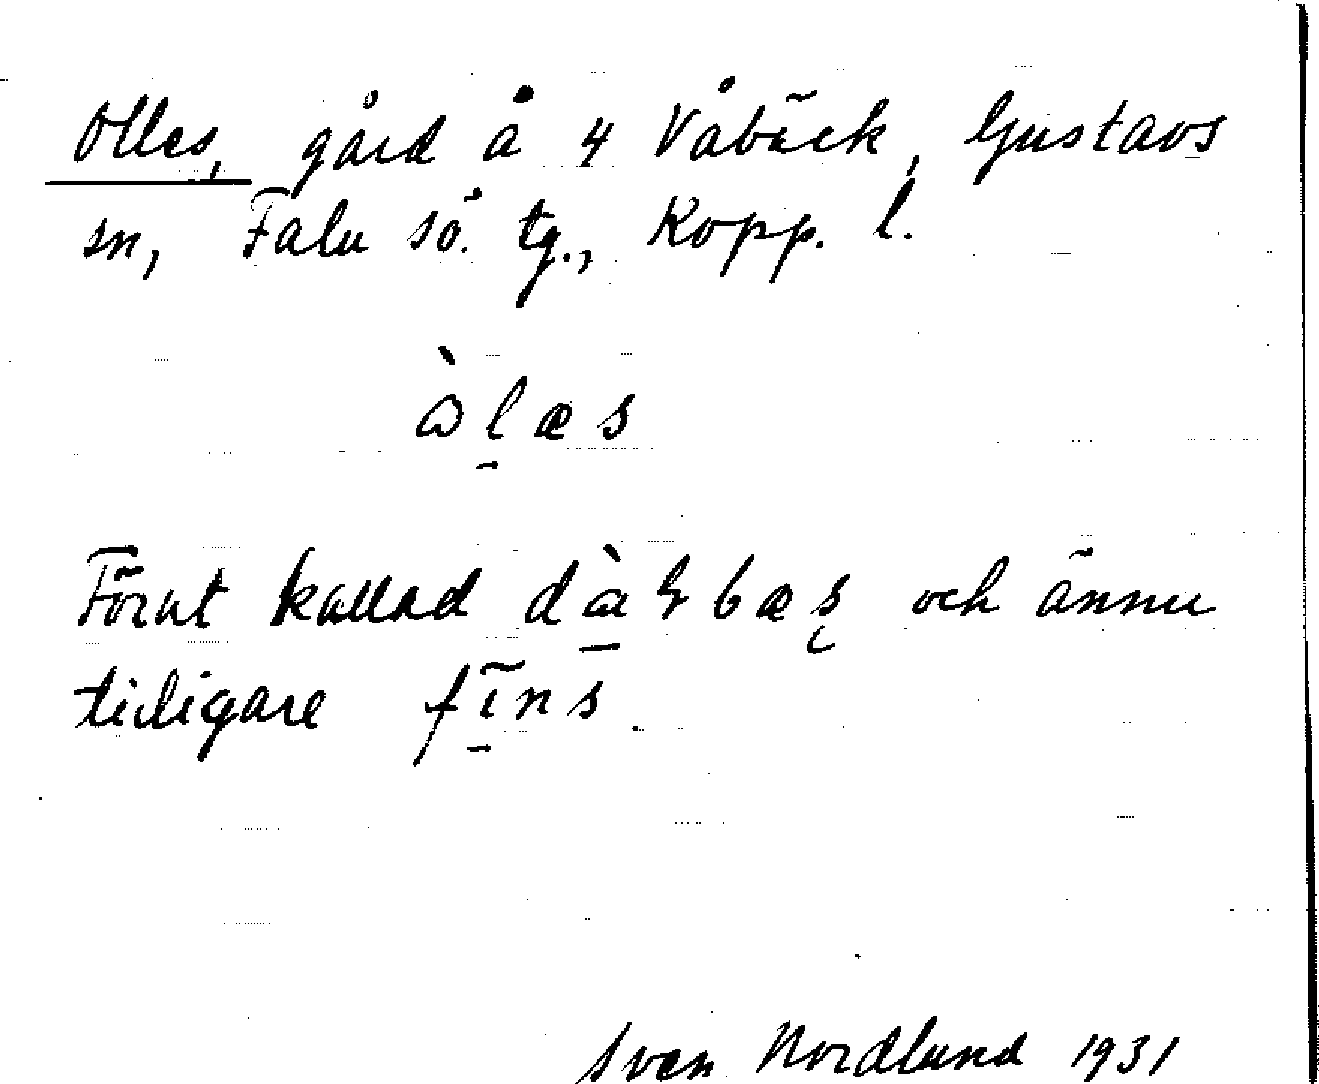 Olles, gård å 4 Våbäck, Gustavs
sn, Falu sö. tg., Kopp. l.
ὼl̠æs
Förut kallad och ännu
tidigare fīns.
Sven Nordlund 1931